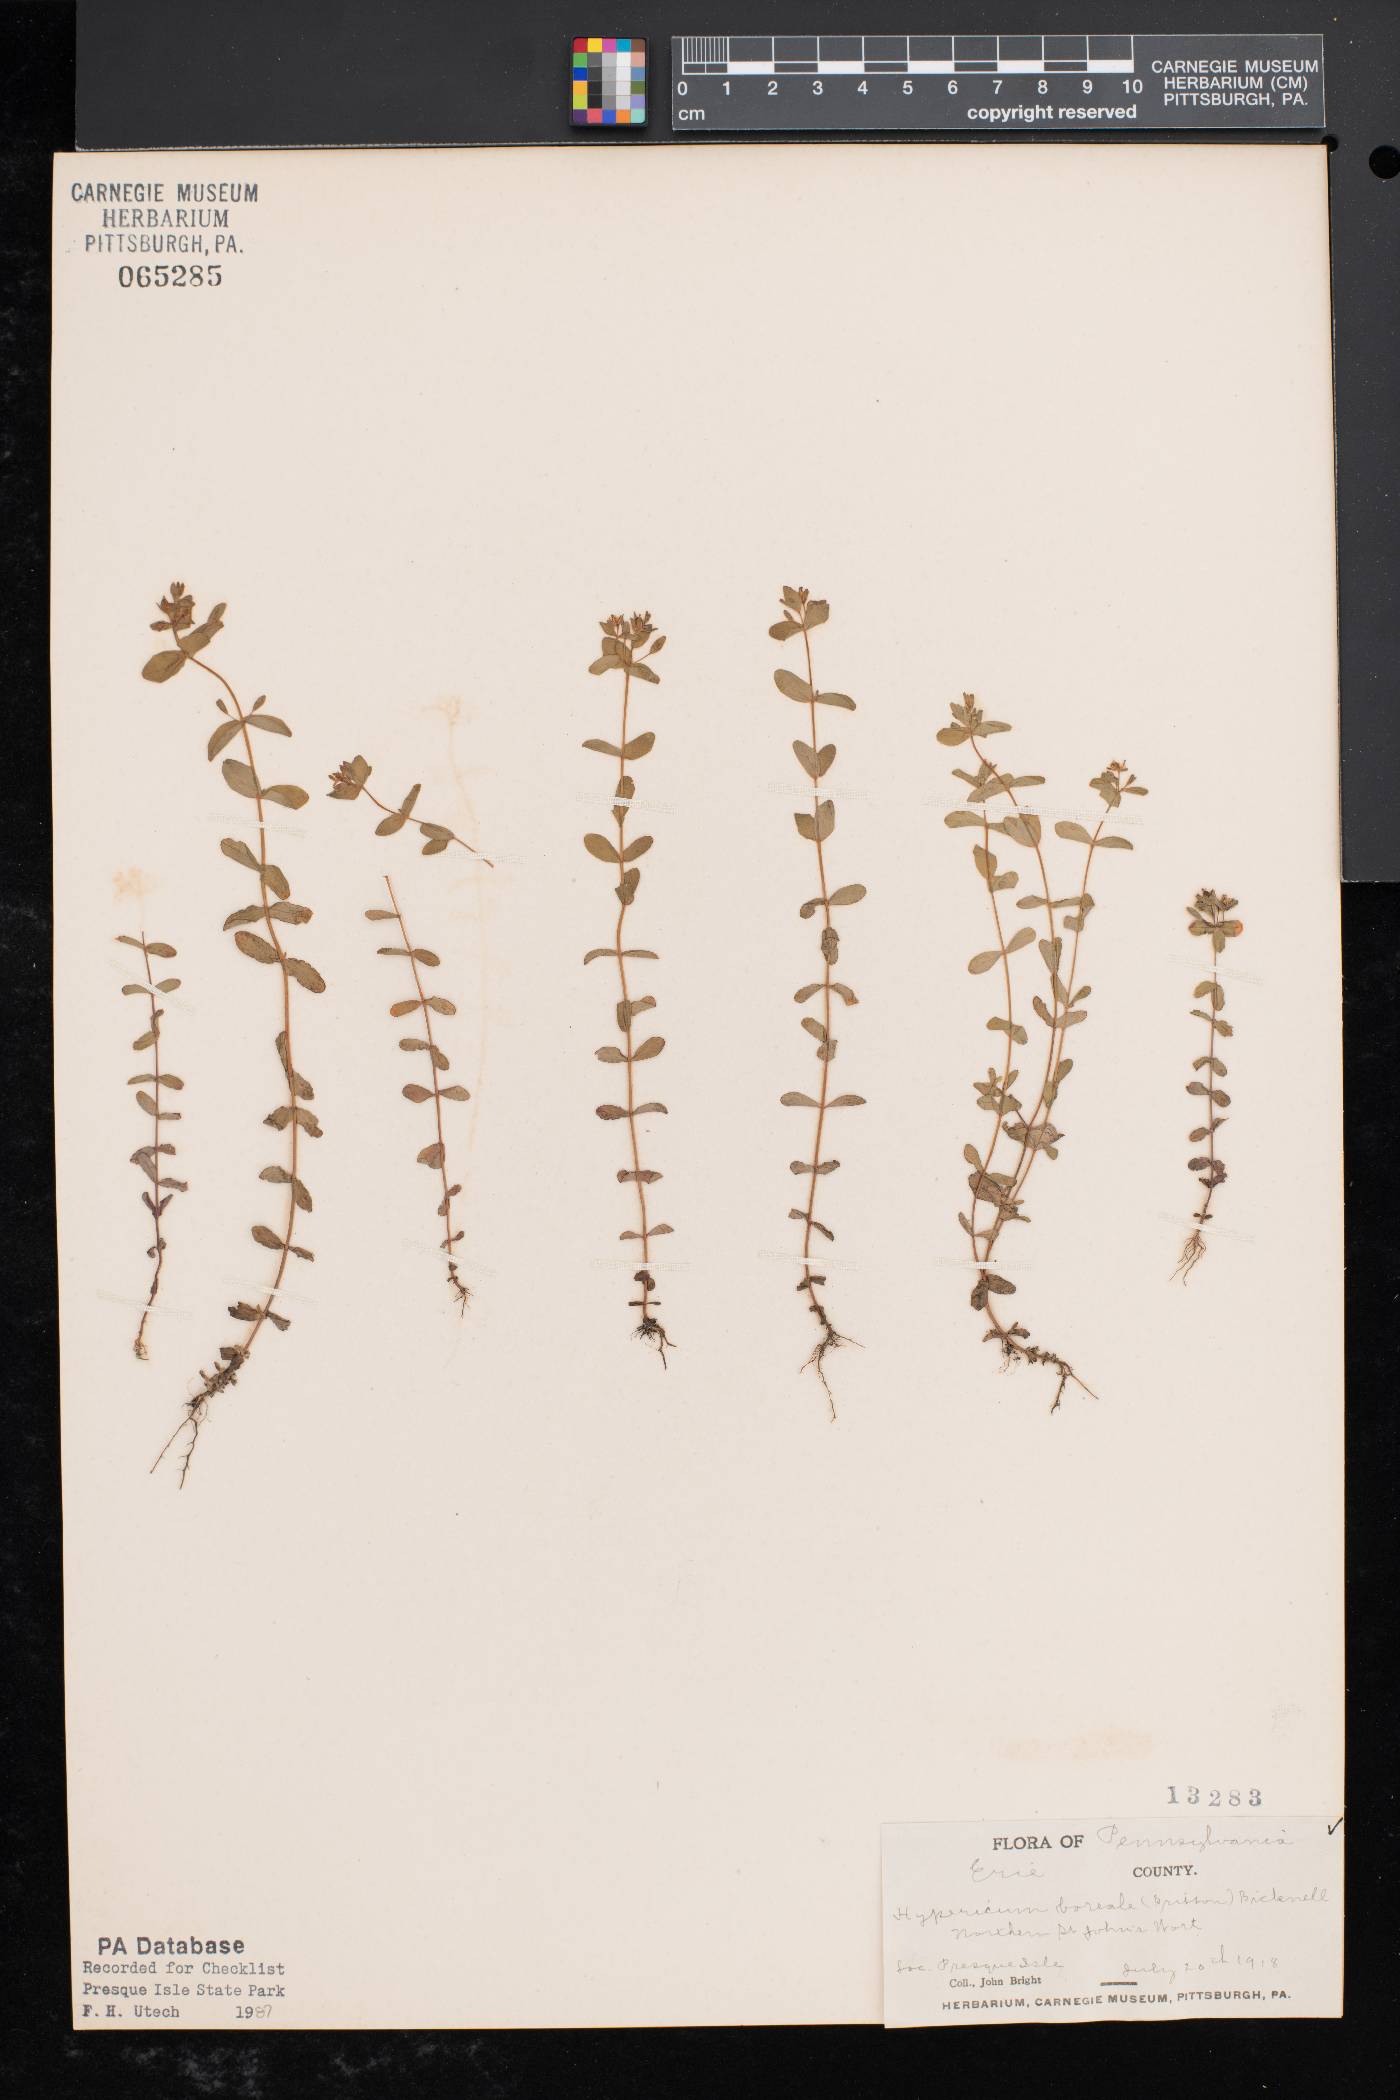 0 1 2 3 4 5 6 7 8 9 10
cm
copyright reserved
CARNEGIE MUSEUM
HERBARIUM (CM)
PITTSBURGH, PA.
CARNEGIE MUSEUM
HERBARIUM
PITTSBURGH, PA.
065285
13283
FLORA OF Pennsylvania
Erie COUNTY.
Hypericum boreale (Britton) Bicknell
Northern St John's Wort
Loc. Presque Isle July 20th 1918
Coll., John Bright
HERBARIUM, CARNEGIE MUSEUM, PITTSBURGH, PA.
PA Database
Recorded for Checklist
Presque Isle State Park
F. H. Utech 1987